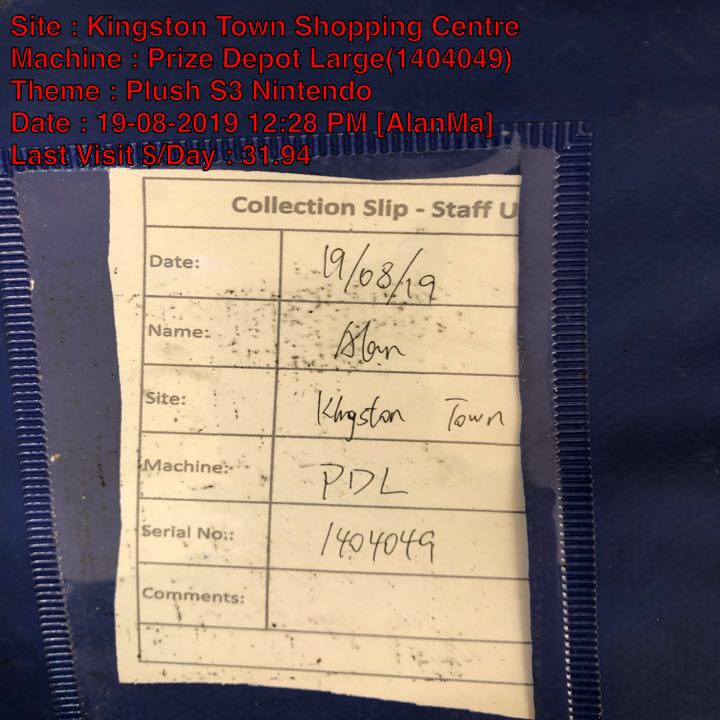 Site : Kingston Town Shopping Centre
Machine : Prize Depot Large(1404049)
Theme : Plush S3 Nintendo
Date : 19-08-2019 12:28 PM [AlanMa]
Last Visit $/Day : 31.94
Collection Slip - Staff U
Date: 19/08/19
Name: Alan
Site: Kingston Town
Machine: PDL
Serial No.: 1404049
Comments: